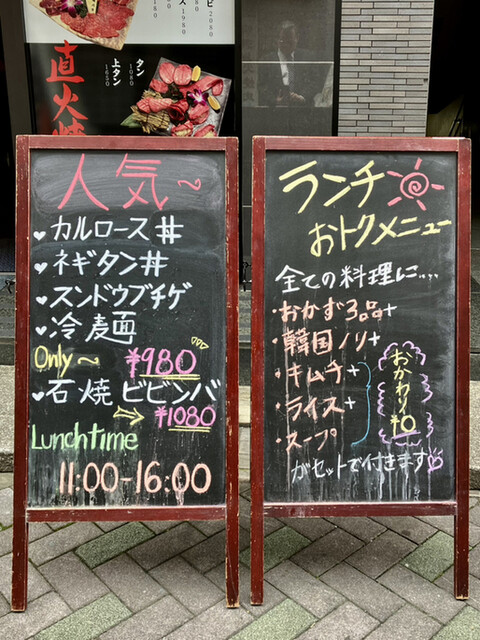 ビ
2080
ス 1980
180
直火焼
上タン
1650
タン
1080
人気〜
♥カルロース丼
♥ネギタン丼
♥スンドゥブチゲ
♥冷麺
Only〜 ¥980
♥石焼ビビンバ
⇒ ¥1080
Lunchtime
11:00-16:00
ランチ
おトクメニュー
全ての料理に....
・おかず3品+
・韓国ノリ+
・キムチ+
・ライス+
・スープ
おかわり¥0
がセットで付きます